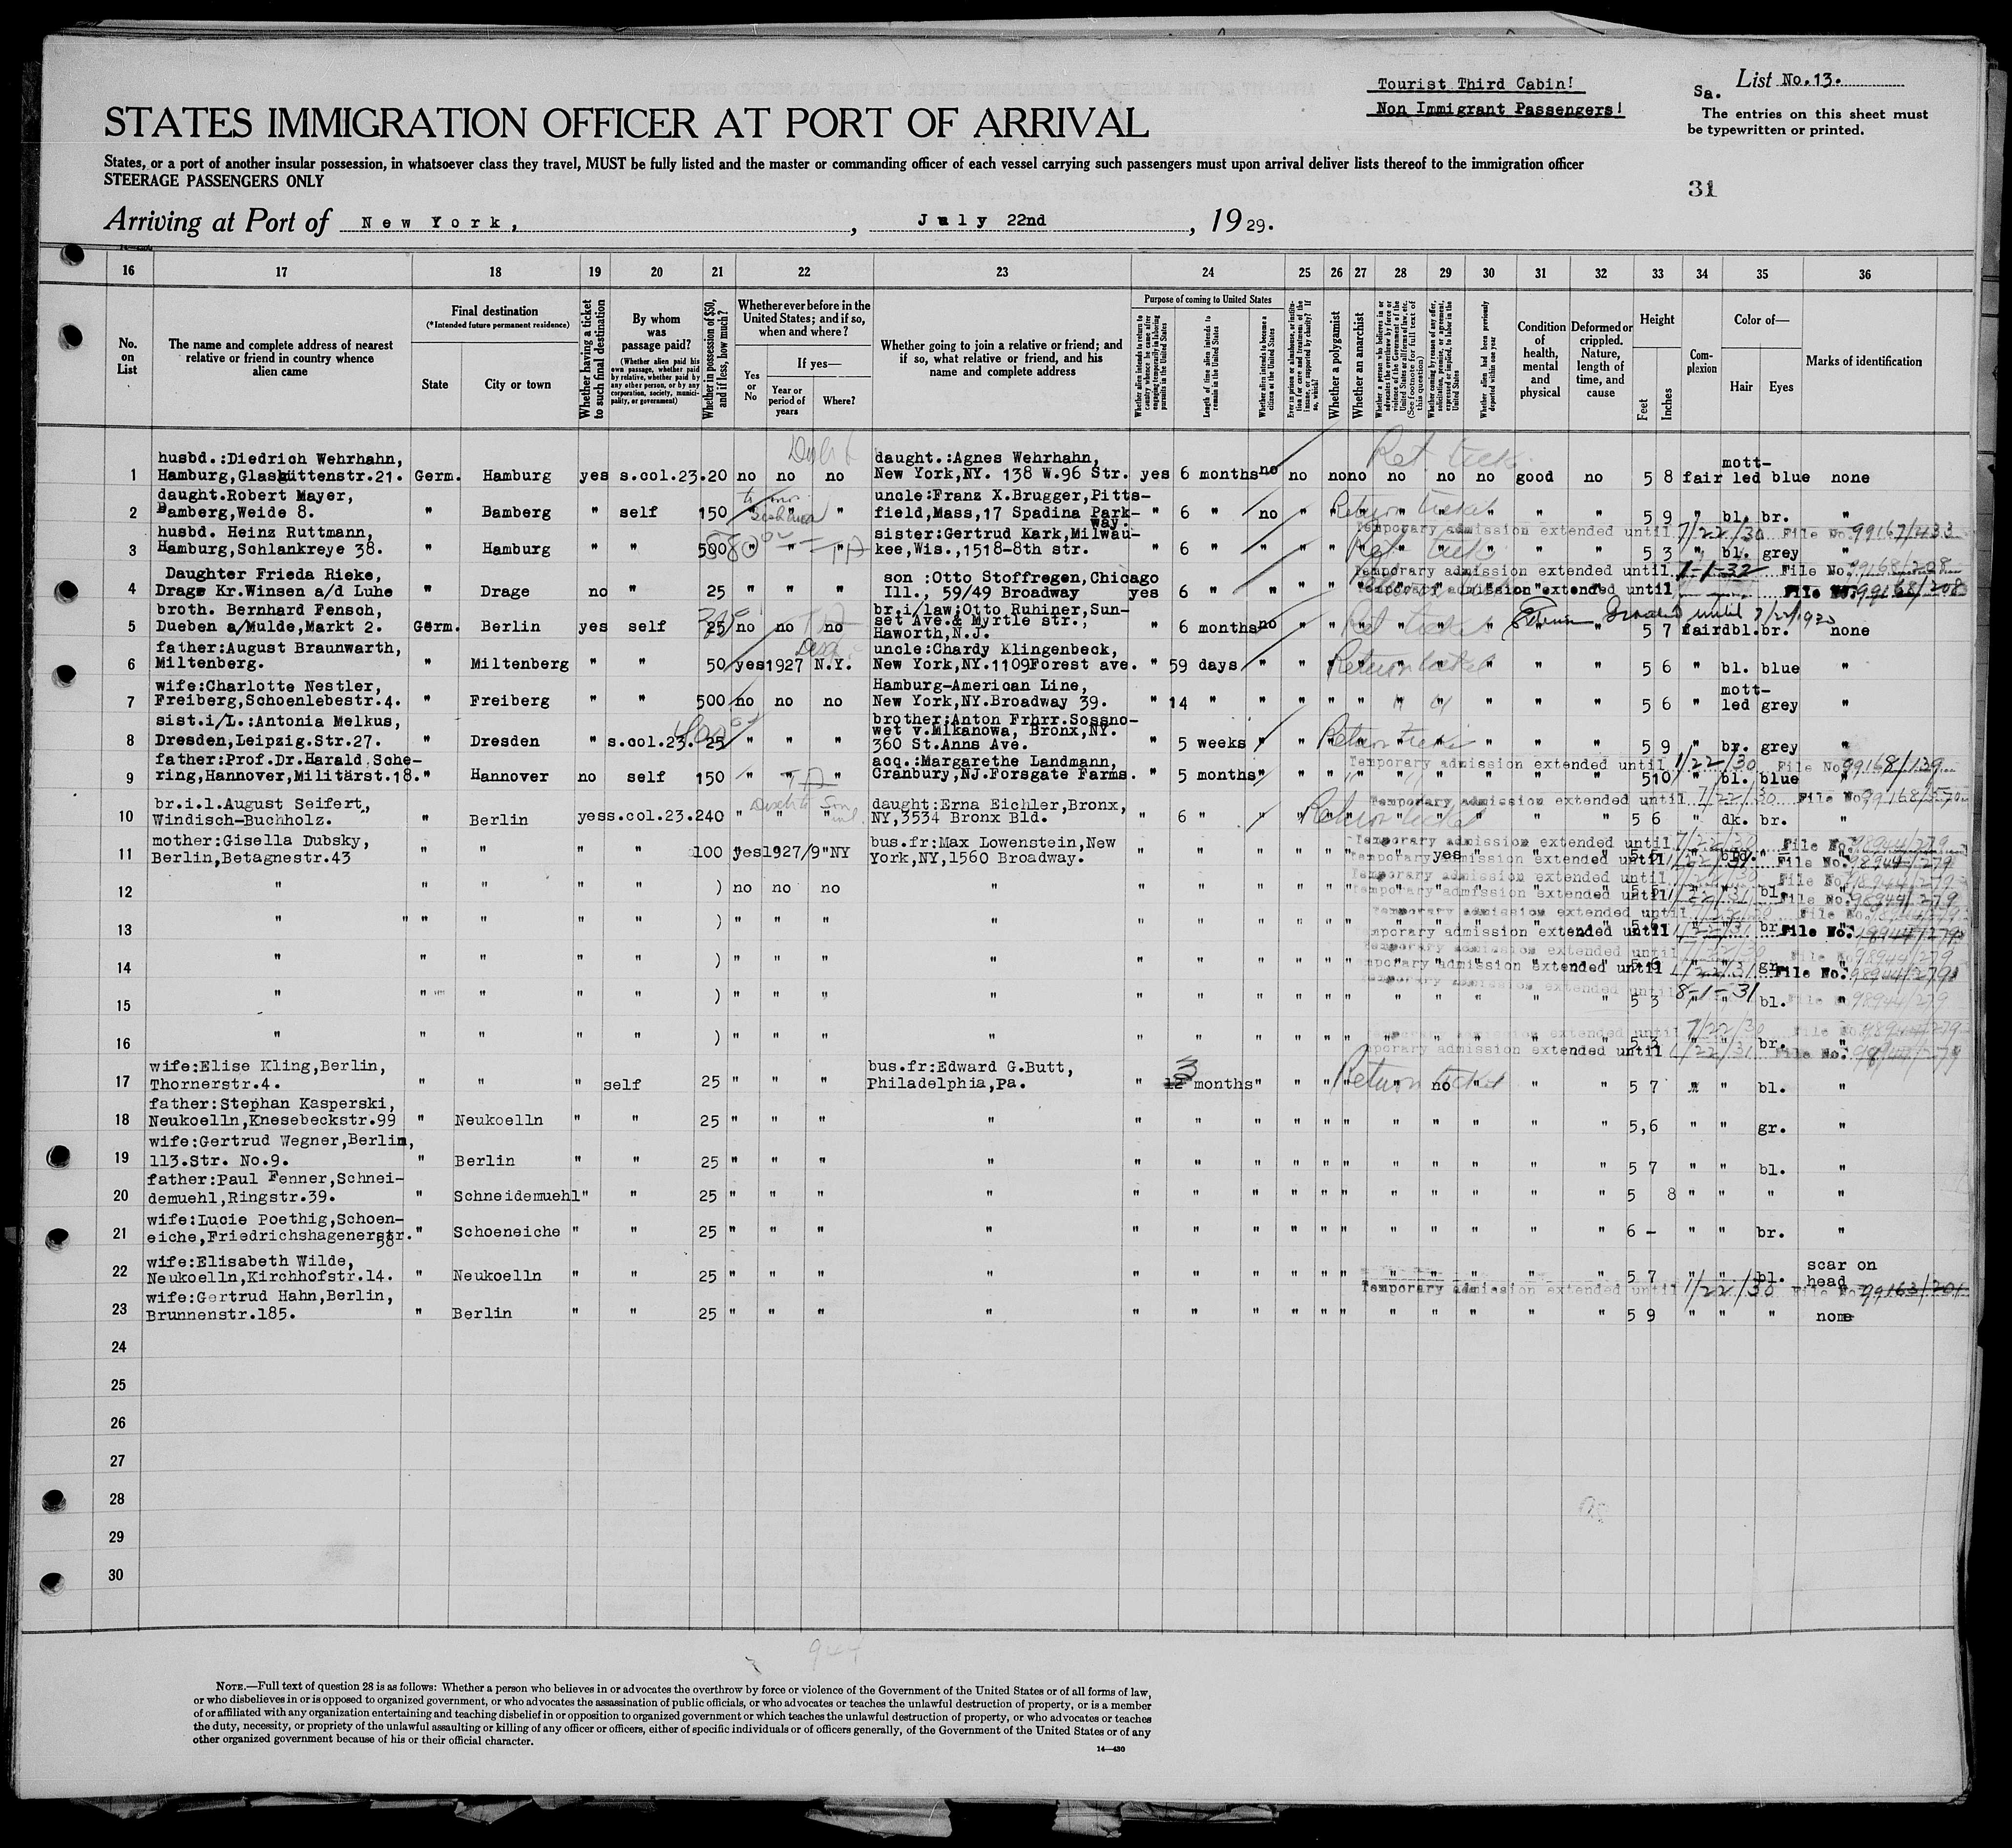 Tourist Third Cabin!
Non Immigrant Passengers!
Sa.
List No.13.
The entries on this sheet must
be typewritten or printed.
STATES IMMIGRATION OFFICER AT PORT OF ARRIVAL
States, or a port of another insular possession, in whatsoever class they travel, MUST be fully listed and the master or commanding officer of each vessel carrying such passengers must upon arrival deliver lists thereof to the immigration officer
STEERAGE PASSENGERS ONLY
31
Arriving at Port of New York, , July 22nd , 1929.
16 17 18 19 20 21 22 23 24 25 26 27 28 29 30 31 32 33 34 35 36
No. on List
The name and complete address of nearest relative or friend in country whence alien came
Final destination
(*Intended future permanent residence)
State
City or town
Whether having a ticket to such final destination
By whom was passage paid?
(Whether alien paid his own passage, whether paid by relative, whether paid by any other person, or by any corporation, society, municipality, or government)
Whether in possession of $50, and if less, how much?
Whether ever before in the United States; and if so, when and where?
Yes or No
If yes—
Year or period of years
Where?
Whether going to join a relative or friend; and if so, what relative or friend, and his name and complete address
Purpose of coming to United States
Length of time alien intends to remain in the United States
Whether alien intends to become a citizen of the United States
Whether a polygamist
Whether an anarchist
Whether alien had been previously deported within one year
Condition of health, mental and physical
Deformed or crippled. Nature, length of time, and cause
Height
Feet
Inches
Complexion
Color of—
Hair
Eyes
Marks of identification
husbd.:Diedrich Wehrhahn, daught.:Agnes Wehrhahn, mott-
1 Hamburg,Glashüttenstr.21. Germ. Hamburg yes s.col.23.20 no no no New York,NY. 138 W.96 Str. yes 6 months no no no no no no no good no 5 8 fair led blue none
daught.Robert Mayer, uncle:Franz X.Brugger,Pitts-
2 Bamberg,Weide 8. " Bamberg " self 150 " " field,Mass,17 Spadina Park-way. " 6 " no " " " " " " " " 5 9 " bl. br. "
Return ticket
Temporary admission extended until 7/22/30 File No. 99167/433
husbd. Heinz Ruttmann, sister:Gertrud Kark,Milwau-
3 Hamburg,Schlankreye 38. " Hamburg " " 500 " " " kee,Wis.,1518-8th str. " 6 " " " " " " " " " " 5 3 " bl. grey "
Temporary admission extended until 1-1-32 File No. 99168/208
Daughter Frieda Rieke, son :Otto Stoffregen,Chicago
4 Drage Kr.Winsen a/d Luhe " Drage no " 25 " " " Ill., 59/49 Broadway yes 6 " "
Temporary admission extended until File No. 99168/208
broth. Bernhard Fensch, br.i/law:Otto Ruhiner,Sun-
5 Dueben a/Mulde,Markt 2. Germ. Berlin yes self 25 no no no set Ave.& Myrtle str., Haworth,N.J. " 6 months no " " " " " " " " 5 7 fair dbl.br. none
father:August Braunwarth, uncle:Chardy Klingenbeck,
6 Miltenberg. " Miltenberg " " 50 yes 1927 N.Y. New York,NY.1109Forest ave. " 59 days " " " " " " " " " 5 6 " bl. blue "
Return ticket
wife:Charlotte Nestler, Hamburg-American Line, mott-
7 Freiberg,Schoenlebestr.4. " Freiberg " " 500 no no no New York,NY.Broadway 39. " 14 " " " " " " " " " " 5 6 " led grey "
sist.i/L.:Antonia Melkus, brother:Anton Frhrr.Sossno-
8 Dresden,Leipzig.Str.27. " Dresden " s.col.23. 25 " " " wet v.Mikanowa, Bronx,NY. 360 St.Anns Ave. " 5 weeks " " " " " " " " " 5 9 " br. grey "
Return ticket
Temporary admission extended until 1/22/30 File No. 99168/139
father:Prof.Dr.Harald Sche- acq.:Margarethe Landmann,
9 ring,Hannover,Militärst.18." Hannover no self 150 " " " Cranbury,NJ.Forsgate Farms. " 5 months " " " " " " " " " 5 10 " bl. blue "
Temporary admission extended until 7/22/30 File No.
br.i.l.August Seifert, daught:Erna Eichler,Bronx,
10 Windisch-Buchholz. " Berlin yes s.col.23.240 " " " NY,3534 Bronx Bld. " 6 " " " " " " " " " " 5 6 " dk. br. "
Return ticket
mother:Gisella Dubsky, bus.fr:Max Lowenstein,New
Temporary admission extended until 7/22/30 File No. 98944/279
11 Berlin,Betagnestr.43 " " " " 100 yes 1927/9"NY York,NY,1560 Broadway. " " " " " " " yes
Temporary admission extended until 1/22/31 File No. 98944/279
Temporary admission extended until 7/22/30 File No. 98944/279
12 " " " " " ) no no no " " " " " " " bl.
Temporary admission extended until 1/22/31 File No. 98944/279
Temporary admission extended until 7/22/30 File No. 98944/279
13 " " " " " ) " " " " " " " " " " br.
Temporary admission extended until 1/22/31 File No. 98944/279
Temporary admission extended until 7/22/30 File No. 98944/279
14 " " " " " ) " " " " " " " " " " gr.
Temporary admission extended until 1/22/31 File No. 98944/279
Temporary admission extended until 8-1-31 File No. 98944/279
15 " " " " " ) " " " " " " " " " " 5 3 " " bl. "
Temporary admission extended until 7/22/30 File No. 98944/279
16 " " " " " ) " " " " " " " " " " 5 3 " " br. "
Temporary admission extended until 1/22/31 File No. 98944/279
wife:Elise Kling,Berlin, bus.fr:Edward G.Butt,
17 Thornerstr.4. " " " self 25 " " " Philadelphia,Pa. " 3 12 months " " " " " no " " " 5 7 " bl. "
Return ticket
father:Stephan Kasperski,
18 Neukoelln,Knesebeckstr.99 " Neukoelln " " 25 " " " " " " " " " " " " " " " 5,6 " " gr. "
wife:Gertrud Wegner,Berlin,
19 113.Str. No.9. " Berlin " " 25 " " " " " " " " " " " " " " " 5 7 " " bl. "
father:Paul Fenner,Schnei-
20 demuehl,Ringstr.39. " Schneidemuehl " " 25 " " " " " " " " " " " " " " " 5 8 " " " "
wife:Lucie Poethig,Schoen-
21 eiche,Friedrichshagenerstr.58 " Schoeneiche " " 25 " " " " " " " " " " " " " " " 6 - " " br. "
wife:Elisabeth Wilde, scar on
22 Neukoelln,Kirchhofstr.14. " Neukoelln " " 25 " " " " " " " " " " " " " " " 5 7 " " bl. head
Temporary admission extended until 1/22/30 File No. 99163/201
wife:Gertrud Hahn,Berlin,
23 Brunnenstr.185. " Berlin " " 25 " " " " " " " " " " " " " " " 5 9 " " " none
24
25
26
27
28
29
30
944
NOTE.—Full text of question 28 is as follows: Whether a person who believes in or advocates the overthrow by force or violence of the Government of the United States or of all forms of law,
or who disbelieves in or is opposed to organized government, or who advocates the assassination of public officials, or who advocates or teaches the unlawful destruction of property, or is a member
of or affiliated with any organization entertaining and teaching disbelief in or opposition to organized government or which teaches the unlawful destruction of property, or who advocates or teaches
the duty, necessity, or propriety of the unlawful assaulting or killing of any officer or officers, either of specific individuals or of officers generally, of the Government of the United States or of any
other organized government because of his or their official character.
14—430